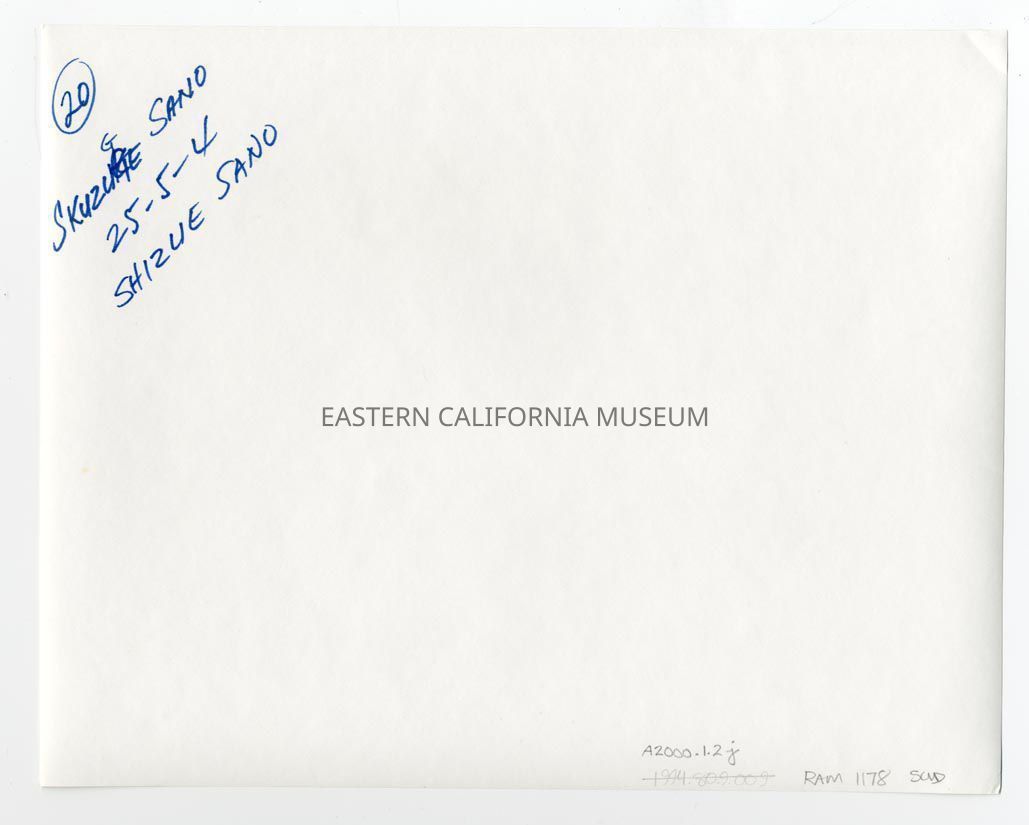 20
SKUZUGE SANO
25-5-4
SHIZUE SANO
EASTERN CALIFORNIA MUSEUM
A2000.1.2j
1994.809.009
RAM 1178 SCUD